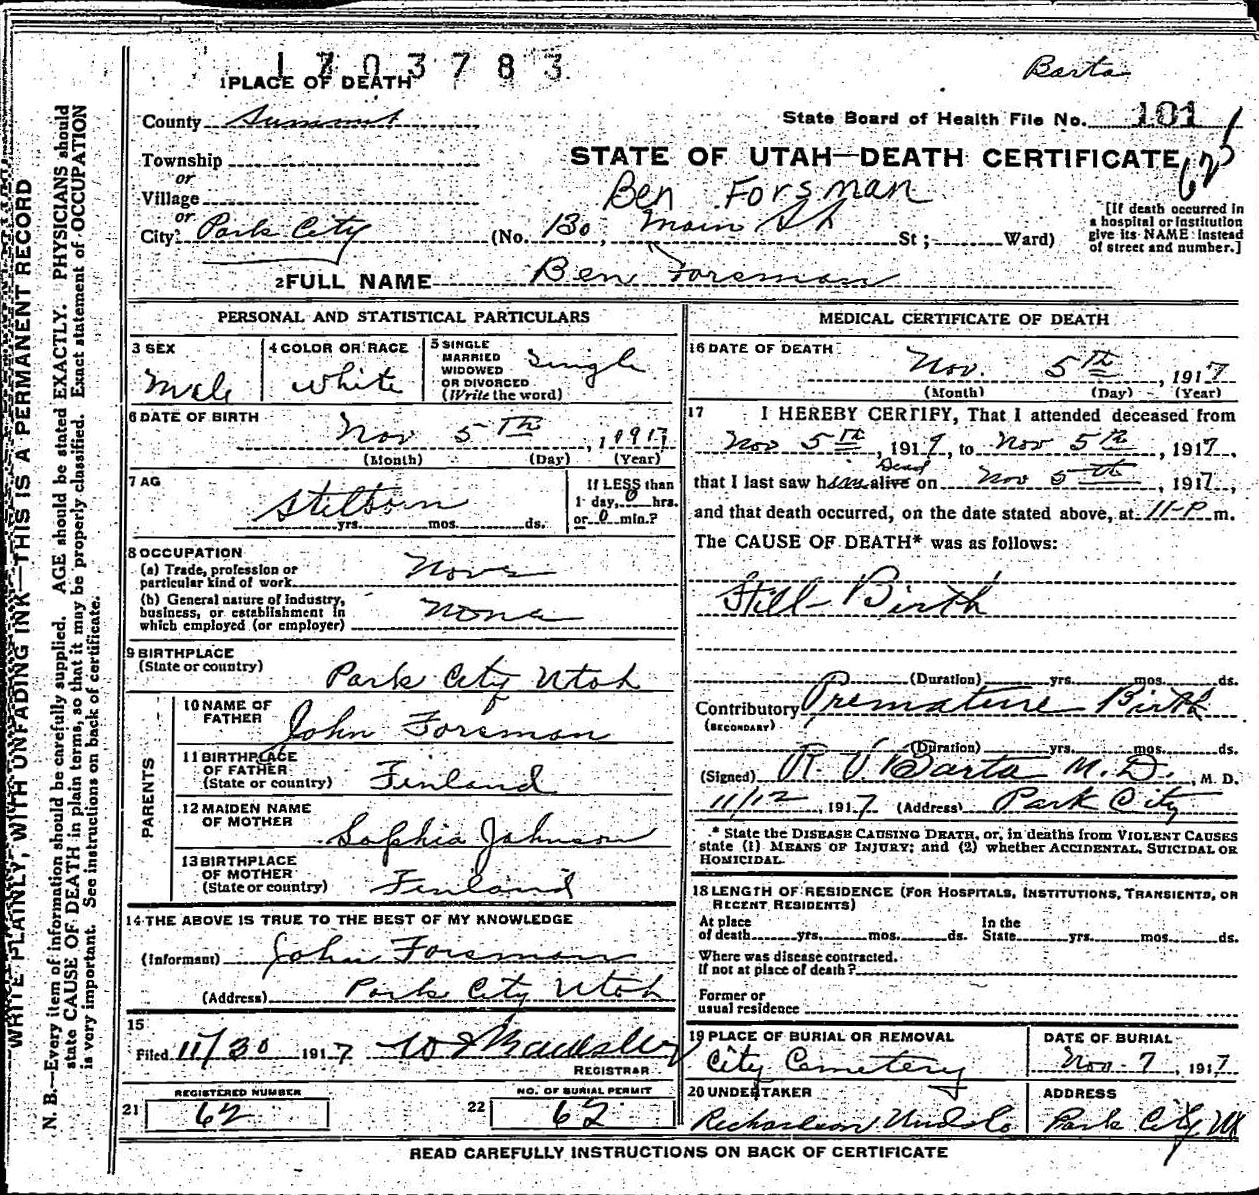 1703783
Barta
1 PLACE OF DEATH
County Summit
State Board of Health File No. 101
Township
or
STATE OF UTAH—DEATH CERTIFICATE
Village
Ben Forsman
or
City Park City (No. 130, Main St St; Ward)
[If death occurred in
a hospital or institution
give its NAME instead
of street and number.]
2 FULL NAME Ben Forsman
PERSONAL AND STATISTICAL PARTICULARS
3 SEX
Male
4 COLOR OR RACE
White
5 SINGLE
MARRIED
WIDOWED
OR DIVORCED
(Write the word)
Single
6 DATE OF BIRTH
Nov 5th, 1917
(Month) (Day) (Year)
7 AG
Stilborn
yrs. mos. ds.
If LESS than
1 day, 0 hrs.
or 0 min.?
8 OCCUPATION
(a) Trade, profession or
particular kind of work None
(b) General nature of industry,
business, or establishment in
which employed (or employer) None
9 BIRTHPLACE
(State or country)
Park City Utah
PARENTS
10 NAME OF
FATHER
John Forsman
11 BIRTHPLACE
OF FATHER
(State or country) Finland
12 MAIDEN NAME
OF MOTHER
Sophia Johnson
13 BIRTHPLACE
OF MOTHER
(State or country) Finland
14 THE ABOVE IS TRUE TO THE BEST OF MY KNOWLEDGE
(Informant) John Forsman
(Address) Park City Utah
15
Filed 11/30 1917
REGISTRAR
REGISTERED NUMBER
21 62
NO. OF BURIAL PERMIT
22 62
MEDICAL CERTIFICATE OF DEATH
16 DATE OF DEATH
Nov. 5th, 1917
(Month) (Day) (Year)
17 I HEREBY CERTIFY, That I attended deceased from
Nov 5th, 1917, to Nov 5th, 1917,
Dead
that I last saw him alive on Nov 5th, 1917,
and that death occurred, on the date stated above, at 11-P m.
The CAUSE OF DEATH* was as follows:
Still-Birth
(Duration) yrs. mos. ds.
Contributory Premature Birth
(SECONDARY)
(Duration) yrs. mos. ds.
(Signed) R. V. Barta M.D. M. D.
11/12, 1917 (Address) Park City
* State the DISEASE CAUSING DEATH, or, in deaths from VIOLENT CAUSES
state (1) MEANS OF INJURY; and (2) whether ACCIDENTAL, SUICIDAL OR
HOMICIDAL.
18 LENGTH OF RESIDENCE (FOR HOSPITALS, INSTITUTIONS, TRANSIENTS, OR
RECENT RESIDENTS)
At place In the
of death yrs. mos. ds. State yrs. mos. ds.
Where was disease contracted.
if not at place of death?
Former or
usual residence
19 PLACE OF BURIAL OR REMOVAL
City Cemetery
DATE OF BURIAL
Nov-7, 1917
20 UNDERTAKER
Richardson Und Co
ADDRESS
Park City Ut
READ CAREFULLY INSTRUCTIONS ON BACK OF CERTIFICATE
WRITE PLAINLY, WITH UNFADING INK—THIS IS A PERMANENT RECORD
N. B.—Every item of information should be carefully supplied. AGE should be stated EXACTLY. PHYSICIANS should
state CAUSE OF DEATH in plain terms, so that it may be properly classified. Exact statement of OCCUPATION
is very important. See instructions on back of certificate.